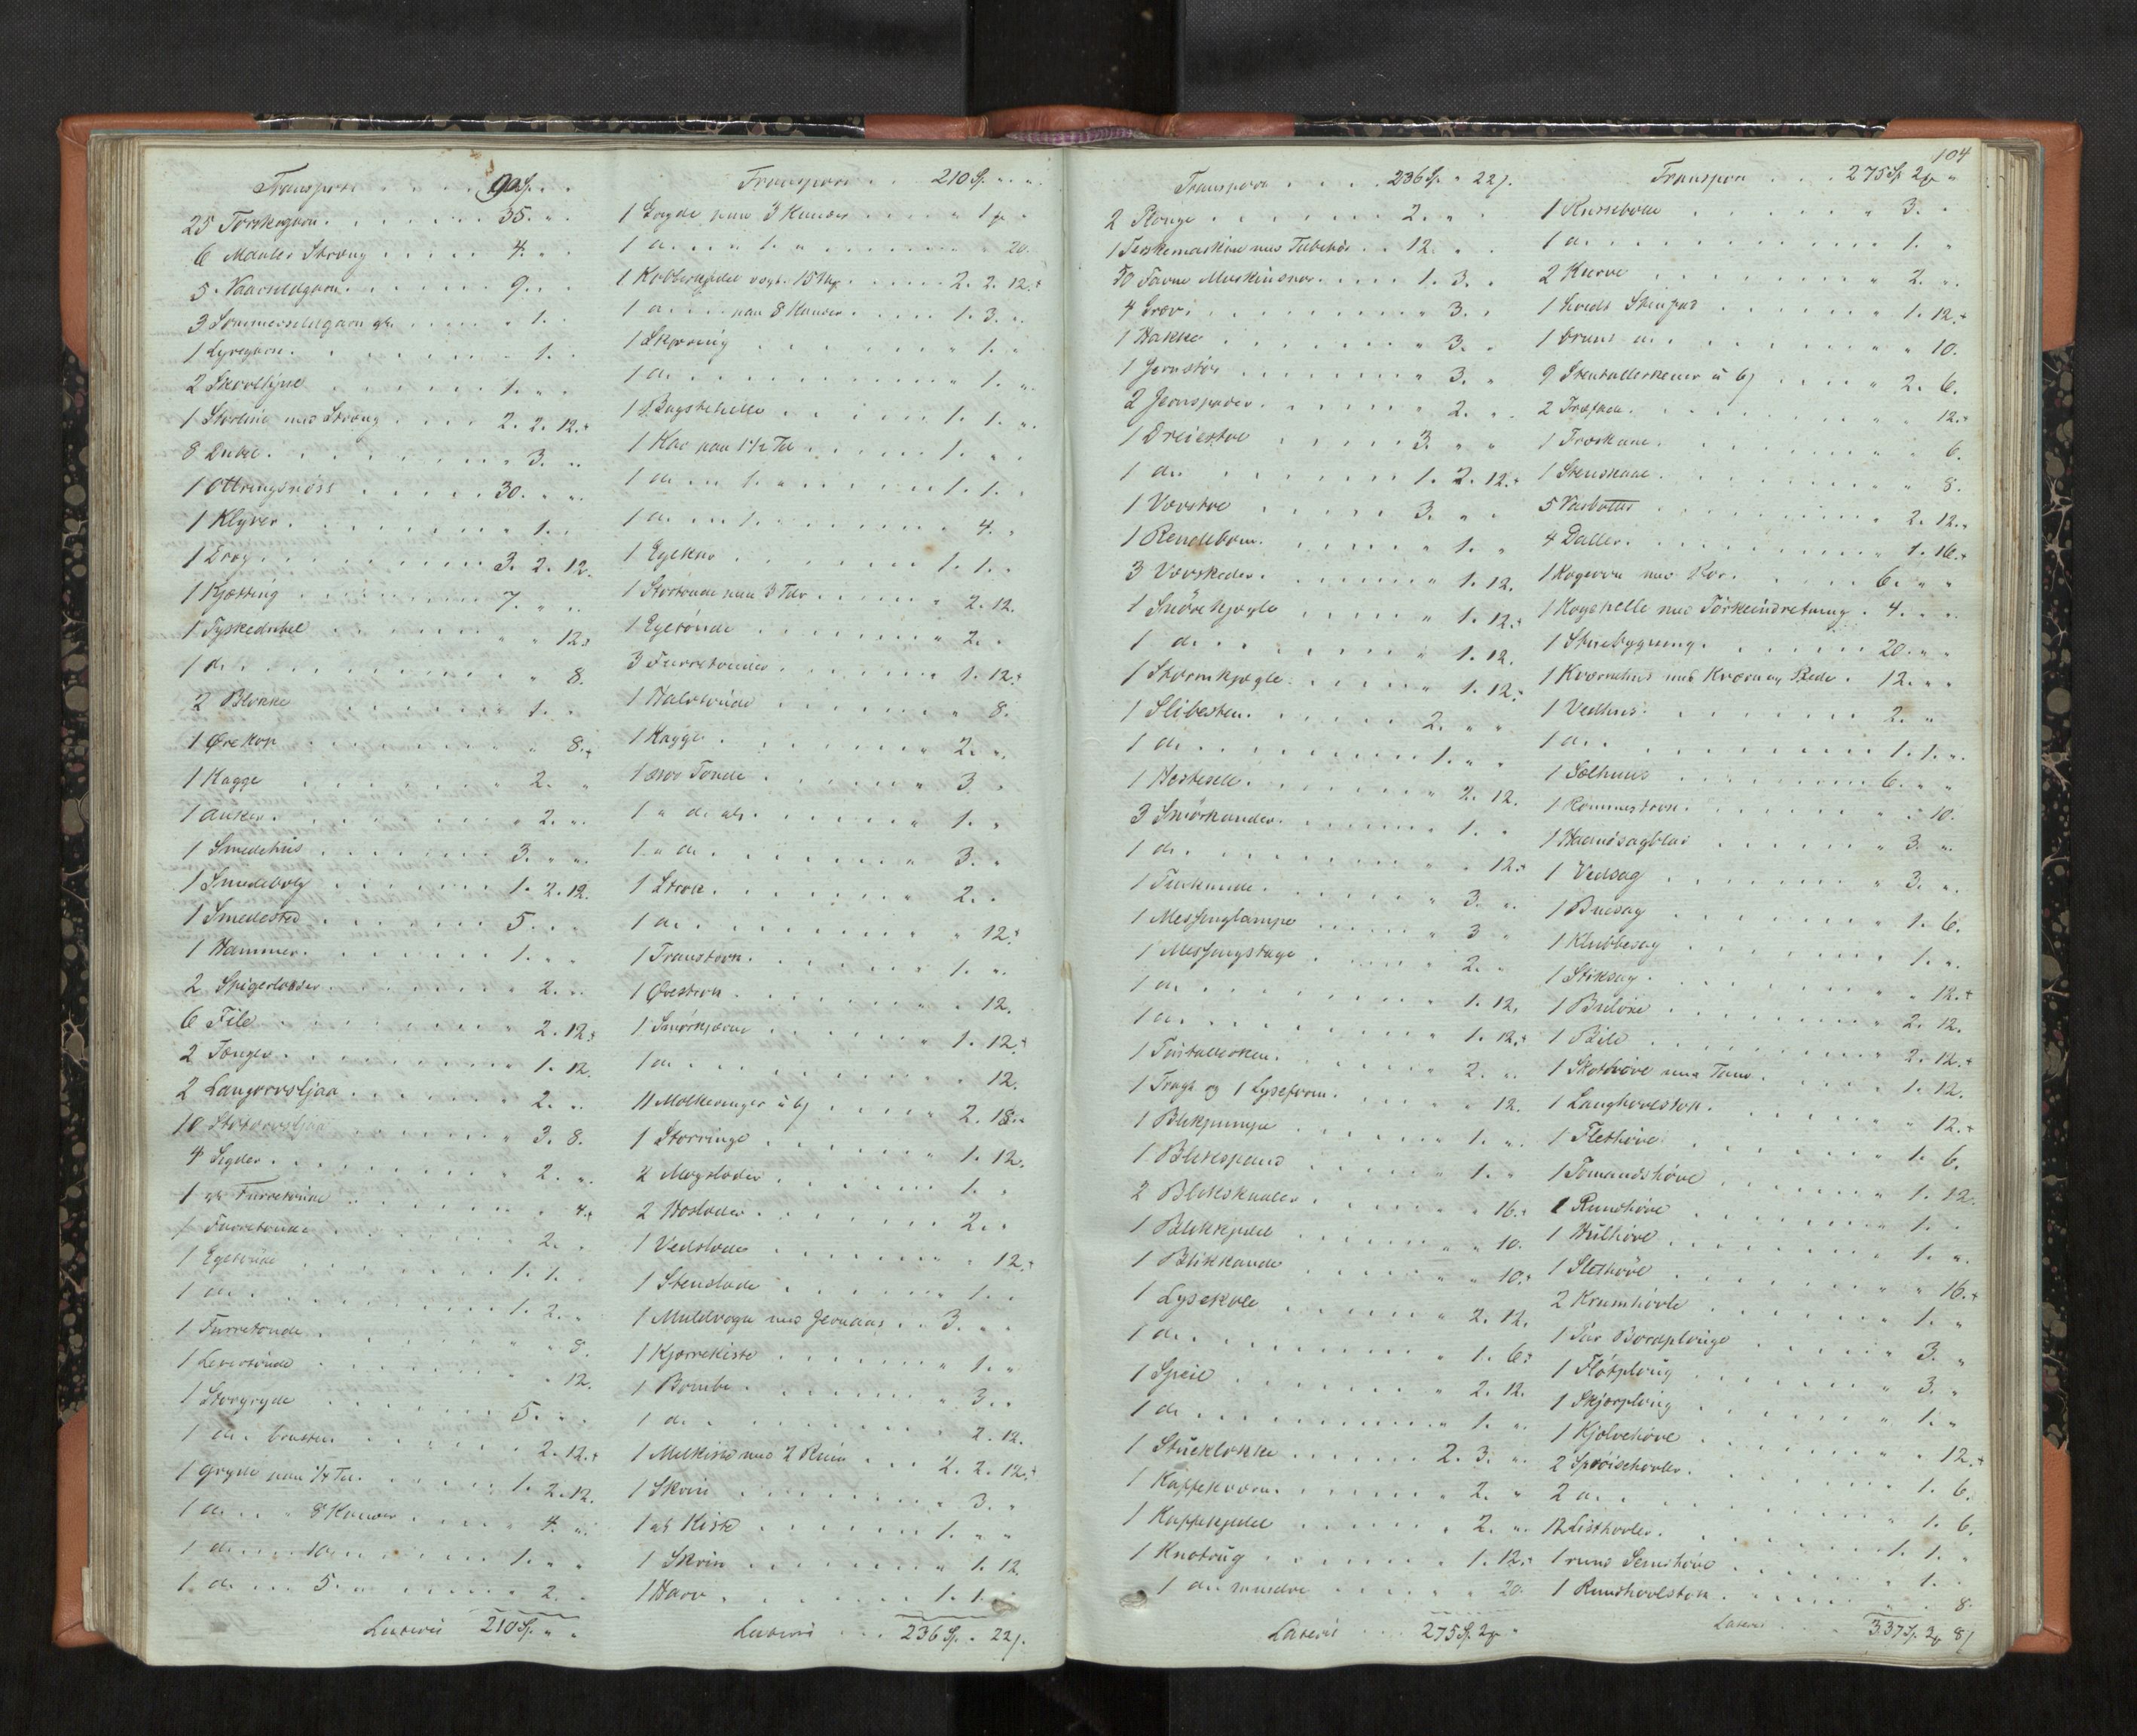 Transport . . . . 90 Sp. . .
25 Torskegarn . . . . . . . 35. " .
6 Maaler Streng . . . . . 4. . .
5 Vaarsildgarn . . . . . . 9. . .
3 Sommersildgarn gl. . . . . " 1. .
1 Lyregarn . . . . . . . . " 1. .
2 . . . . . . 1. " .
1 Storline med Streng . . . . 2. 2. 12.
8 Duker . . . . . . . . " 3. "
1 Ottringsnöst . . . . . 30. " "
1 Klyver . . . . . . . . " 1. .
1 Drag . . . . . . . . 3. 2. 12.
1 Kjætting . . . . . . . 7. " "
1 Tyskedubel . . . . . . " " 12.
1 do . . . . . . . . " 8.
2 Blokke . . . . . . . " 1. .
1 Ørekop . . . . . . . " " 8.
1 Kagge . . . . . . . " 2. "
1 Anker . . . . . . . " 2. "
1 Smedehus . . . . . . 3. " "
1 Smedebelg . . . . . . 1. 2. 12.
1 Smedested . . . . . . 5. . .
1 Hammer . . . . . . . 1. " .
2 Spigerlodder . . . . . . " 2. "
6 File . . . . . . . " 2. 12.
2 Tænger . . . . . . . " 1. 12.
2 Langorvsljaa . . . . . . 2. "
10 Stutorvsljaa . . . . . " 3. 8.
4 Sigder . . . . . . . " 2. "
1 gl. Furretønde . . . . . " 4.
1 Furretønde . . . . . . " 2. .
1 Egetønde . . . . . . . 1. 1. .
1 do . . . . . . . . 1. 2. "
1 Furretønde . . . . . . " " 8.
1 Levertønde . . . . . . " " 12.
1 Storgryde . . . . . . 5. " .
1 do brusten . . . . . . 2. 12.
1 Gryde paa 1/4 Td. . . . . . 1. 2. 12.
1 do " 8 Kander . . . . . " 4. "
1 do . . 10 . . . . . . 1. " "
1 do . . 5. " . . . . . " 2. .
Lateris 210 Sp. " "
Transport . . 210 Sp. " "
1 Gryde paa 3 Kander . . . . " 1 . "
1 do . . " 1. " . . . . . " 20.
1 Kobberkjedel vegt. 15 . . . . 2. 2. 12.
1 do . . paa 8 Kander . . . . 1. 3. "
1 Skjøring . . . . . . . " 1. "
1 do . . . . . . . . " 1. "
1 Bagstehelle . . . . . . 1. 1. "
1 Kar paa 1 1/2 Td . . . . . 1. " .
1 do . . 1. " . . . . . 1. 1. .
1 do . . 1. . . . . . . " 4. "
1 Egekar . . . . . . . 1. 1. .
1 Stortønde paa 3 Tdr . . . . " 2. 12.
1 Egetønde . . . . . . . " 2. .
3 Furretønder . . . . . . " 1. 12.
1 Halvtønde . . . . . . " " 8.
1 Kagge . . . . . . . " 2. "
1 stor Tønde . . . . . . " 3. .
1 " do gl. . . . . . . " 1. "
1 " do . . . . . . . " 3. .
1 Strok . . . . . . . " 2. .
1 do . . . . . . . . " " 12.
1 Transtrok . . . . . . " 1. "
1 Ørestrok . . . . . . . " " 12.
1 Smørkjerne . . . . . . " 1. 12.
1 do . . . . . . . . " " 12.
11 Melkeringer à 6 . . . . " 2. 18.
1 Storringe . . . . . . " 1. 12.
2 Mogslæder . . . . . . " 1. .
2 Høslæder . . . . . . . " 2. .
1 Vedslæde . . . . . . . " " 12.
1 Stenslæde . . . . . . . " 1. .
1 Muldvogn med Jernaas . . 3. " .
1 Kjærrekiste . . . . . . " 1. "
1 Bombe . . . . . . . " 3. .
1 do . . . . . . . . " 2. 12.
1 Melkiste med 2 Rum . . . 2. 2. 12.
1 Skrin . . . . . . . " 3. "
1 gl. Kiste . . . . . . . 1. " "
1 Skrin . . . . . . . " 1. 12.
1 Harv . . . . . . . . 1. 1. .
Lateris . . . 236 Sp. . 22 .
104
Transport . . . . 236 Sp. " 22 .
2 Plouge . . . . . . . 2. " .
1 Terskemaskine med Tilbehør . . 12. . .
50 Favne Maskinsnor . . . . 1. 3. .
4 Grev . . . . . . . . " 3. .
1 Hakke . . . . . . . . " 3. .
1 Jernstør . . . . . . . " 3. "
2 Jernspader . . . . . . . " 2. .
1 Dreiestol . . . . . . . 3. " "
1 do . . . . . . . . 1. 2. 12.
1 Vævstol . . . . . . . 3. " "
1 Rendebom . . . . . . . " 1. "
3 Vævskeder . . . . . . . " 1. 12.
1 Snörekjegle . . . . . . " 1. 12.
1 do . . . . . . . . " 1. 12.
1 Stormkjegle . . . . . . " 1. 12.
1 Slibesten . . . . . . . 2. " "
1 do . . . . . . . . 1. " "
1 Hestesele . . . . . . . " 2. 12.
3 Smørkander . . . . . . . " 1. "
1 do . . . . . . . . " " 12.
1 Tinkande . . . . . . . " 3. "
1 Messinglampe . . . . . . " 3 "
1 Messingstage . . . . . . " 2. "
1 do . . . . . . . . " 1. 12.
1 do . . . . . . . . " 1. 12.
1 Tintallerken . . . . . . " 2. "
1 Tragt og 1 Lyseform . . . . " " 12.
1 Blikpumpe . . . . . . " 1. "
1 Blikspand . . . . . . " 1. "
2 Blikskaaler . . . . . . " " 16.
1 Blikkjedel . . . . . . " " 10.
1 Blikkande . . . . . . " " 10.
1 Lysekole . . . . . . . " 2. 12.
1 do . . . . . . . . " 1. 6.
1 Speil . . . . . . . . " 2. 12.
1 do . . . . . . . . " 1. "
1 Stueklokke . . . . . . . 2. 3. "
1 Kaffekværn . . . . . . . " 2. "
1 Kaffekjedel . . . . . . " 2. "
1 Knotrug . . . . . . . " 1. 12.
1 do mindre . . . . . . " " 20.
Lateris . . . 275 Sp. 2 "
Transport . . . 275 Sp 2 "
1 Russebolle . . . . . . " 3. .
1 do . . . . . . . . " 1. "
2 Kurve . . . . . . . . " 2. "
1 hvidt Stenfad . . . . . . " 1. 12.
1 brunt do . . . . . . . " " 10.
9 Stentallerkener à 6 . . . . " 2. 6.
2 Træfade . . . . . . . . " " 12.
1 Træskaal . . . . . . . " " 6.
1 Stenskaal . . . . . . . " " 8.
5 . . . . . . . " 2. 12.
4 Daller . . . . . . . . " 1. 16.
1 Kogeovn med Rør . . . . . 6. " "
1 Kogehelle med Törkeindretning . 4. . .
1 Stuebygning . . . . . . 20. " "
1 Kværnehus med Kværn og Rede . 12. " .
1 Vedhus . . . . . . . . 2. "
1 do . . . . . . . . 1. 1. "
1 Sælhuus . . . . . . . . 6. " "
1 Rommestrok . . . . . . . " " 10.
1 Haandsagblad . . . . . . " 3. "
1 Vedsag . . . . . . . " 3. "
1 Buesag . . . . . . . " 1. 6.
1 Klubbesag . . . . . . . " 1. "
1 Stiksag . . . . . . . " " 12.
1 Bulöxe . . . . . . . " 2. 12.
1 Bile . . . . . . . . " 2. 12.
1 Skothövl med Tand . . . . . " 1. 12.
1 Langhövelstok . . . . . . " " 12.
1 Flethövl . . . . . . . " 1. 6.
1 Tomandshövl . . . . . . " 1. 12.
1 Rundhövl . . . . . . . " 1. .
1 Hulhövl . . . . . . . " 1. "
1 Slethövl . . . . . . . " " 16.
2 Krumhövle . . . . . . . " 1. "
1 Par Bordplouge . . . . . " 3. "
1 Flötploug . . . . . . . " 3. "
1 Skjørploug . . . . . . " 1. "
1 Kjølvehövl . . . . . . " " 12.
2 . . . . . . " 1. 6.
2 do . . . . . . . . " 1. 6.
12 Listhövler . . . . . . . 1. 1. "
1 rund Simshövl . . . . . " 1. .
1 Rundhövlstok . . . . . . " " 8.
Lateris . . . 337 Sp. 3 8